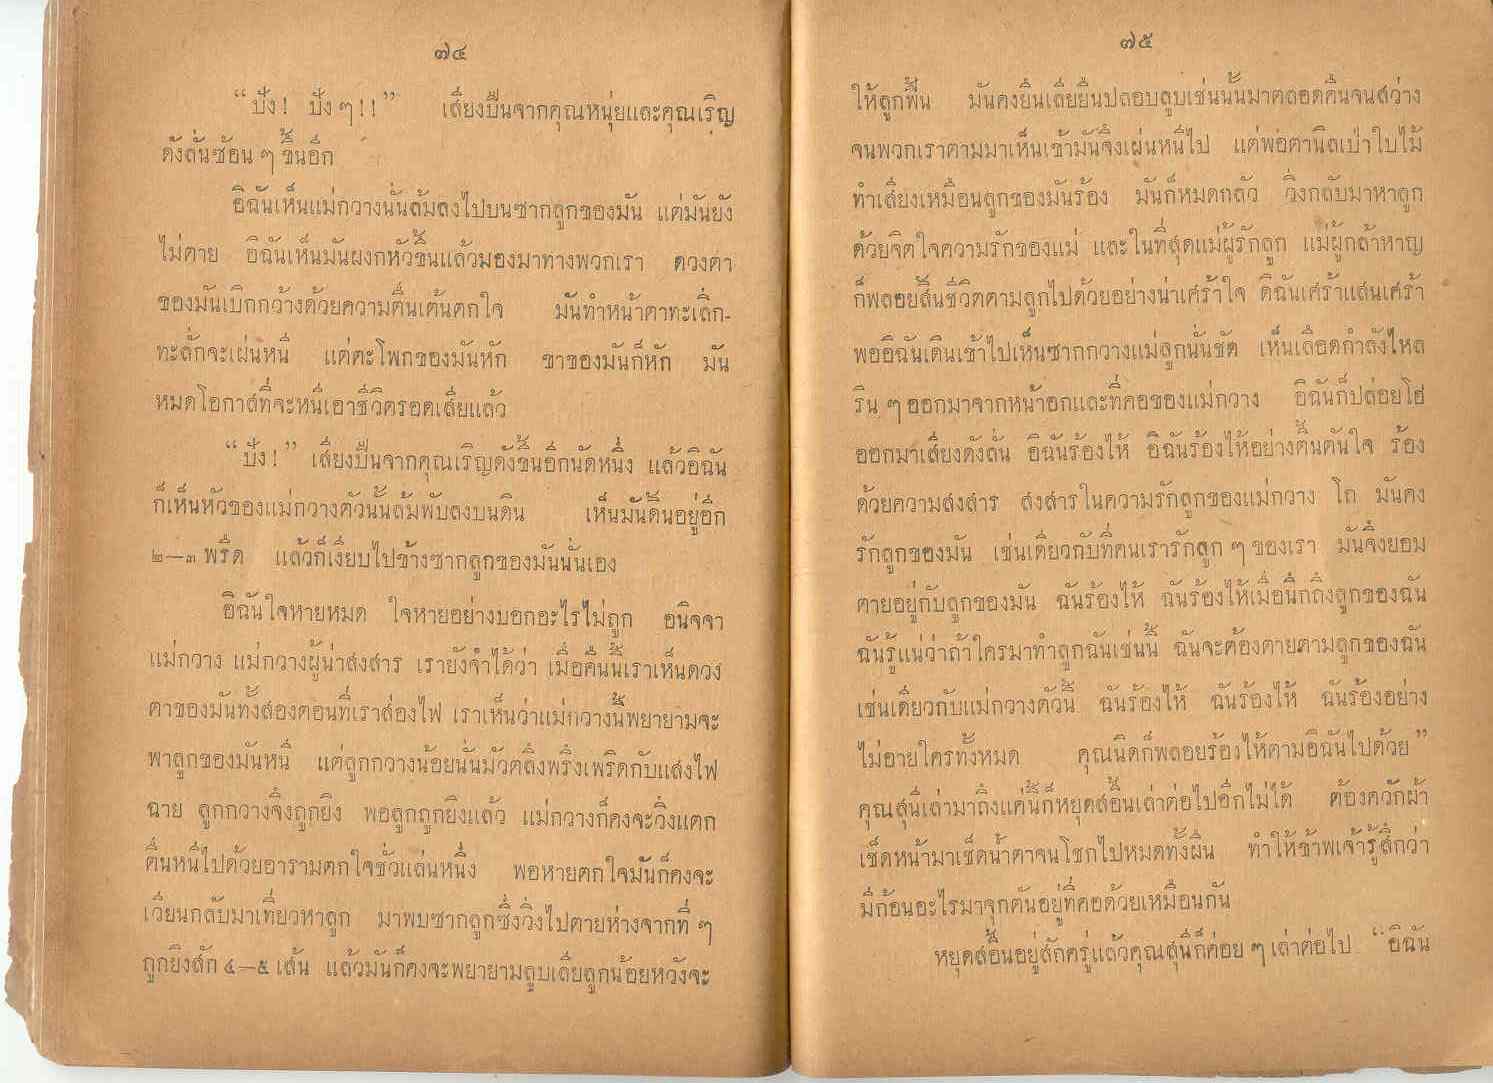 ๗๔
“ปัง! ปังๆ!!” เสียงปืนจากคุณหนุ่ยและคุณเริญ
ดังลั่นซ้อนๆขึ้นอีก
อิฉันเห็นแม่กวางนั่นล้มลงไปบนซากลูกของมัน แต่มันยัง
ไม่ตาย อิฉันเห็นมันผงกหัวขึ้นแล้วมองมาทางพวกเรา ดวงตา
ของมันเบิกกว้างด้วยความตื่นเต้นตกใจ มันทำหน้าตาทะเลิก-
ทะลั่กจะเผ่นหนี แต่ตะโพกของมันหัก ขาของมันก็หัก มัน
หมดโอกาสที่จะหนีเอาชีวิตรอดเสียแล้ว
“ปัง!” เสียงปืนจากคุณเริญดังขึ้นอีกนัดหนึ่ง แล้วอิฉัน
ก็เห็นหัวของแม่กวางตัวนั้นล้มพับลงบนดิน เห็นมันดิ้นอยู่อีก
๒—๓ พรืด แล้วก็เงียบไปข้างซากลูกของมันนั่นเอง
อิฉันใจหายหมด ใจหายอย่างบอกอะไรไม่ถูก อนิจจา
แม่กวาง แม่กวางผู้น่าสงสาร เรายังจำได้ว่า เมื่อคืนนี้เราเห็นดวง
ตาของมันทั้งสองตอนที่เราส่องไฟ เราเห็นว่าแม่กวางนี้พยายามจะ
พาลูกของมันหนี แต่ลูกกวางน้อยนั่นมัวตลึงพรึงเพริดกับแสงไฟ
ฉาย ลูกกวางจึงถูกยิง พอลูกถูกยิงแล้ว แม่กวางก็คงจะวิ่งแตก
ตื่นหนีไปด้วยอารามตกใจชั่วแล่นหนึ่ง พอหายตกใจมันก็คงจะ
เวียนกลับมาเที่ยวหาลูก มาพบซากลูกซึ่งวิ่งไปตายห่างจากที่ๆ
ถูกยิงสัก ๔—๕ เส้น แล้วมันก็คงจะพยายามลูบเลียลูกน้อยหวังจะ
๗๕
ให้ลูกฟื้น มันคงยืนเลียยืนปลอบลูบเช่นนั้นมาตลอดคืนจนสว่าง
จนพวกเราตามมาเห็นเข้ามันจึงเผ่นหนีไป แต่พอตานิลเป่าใบไม้
ทำเสียงเหมือนลูกของมันร้อง มันก็หมดกลัว วิ่งกลับมาหาลูก
ด้วยจิตใจความรักของแม่ และในที่สุดแม่ผู้รักลูก แม่ผู้กล้าหาญ
ก็พลอยสิ้นชีวิตตามลูกไปด้วยอย่างน่าเศร้าใจ ดิฉันเศร้าแสนเศร้า
พออิฉันเดินเข้าไปเห็นซากกวางแม่ลูกนั่นชัด เห็นเลือดกำลังไหล
รินๆออกมาจากหน้าอกและที่คอของแม่กวาง อิฉันก็ปล่อยโฮ
ออกมาเสียงดังลั่น อิฉันร้องไห้ อิฉันร้องไห้อย่างตื้นตันใจ ร้อง
ด้วยความสงสาร สงสารในความรักลูกของแม่กวาง โถ มันคง
รักลูกของมัน เช่นเดียวกับที่คนเรารักลูกๆของเรา มันจึงยอม
ตายอยู่กับลูกของมัน ฉันร้องไห้ ฉันร้องไห้เมื่อนึกถึงลูกของฉัน
ฉันรู้แน่ว่าถ้าใครมาทำลูกฉันเช่นนี้ ฉันจะต้องตายตามลูกของฉัน
เช่นเดียวกับแม่กวางตัวนี้ ฉันร้องไห้ ฉันร้องไห้ ฉันร้องอย่าง
ไม่อายใครทั้งหมด คุณนิดก็พลอยร้องไห้ตามอิฉันไปด้วย”
คุณสุนีเล่ามาถึงแค่นี้ก็หยุดสอื้นเล่าต่อไปอีกไม่ได้ ต้องควักผ้า
เช็ดหน้ามาเช็ดน้ำตาจนโชกไปหมดทั้งผืน ทำให้ข้าพเจ้ารู้สึกว่า
มีก้อนอะไรมาจุกตันอยู่ที่คอด้วยเหมือนกัน
หยุดสอื้นอยู่สักครู่แล้วคุณสุนีก็ค่อยๆเล่าต่อไป “อิฉัน